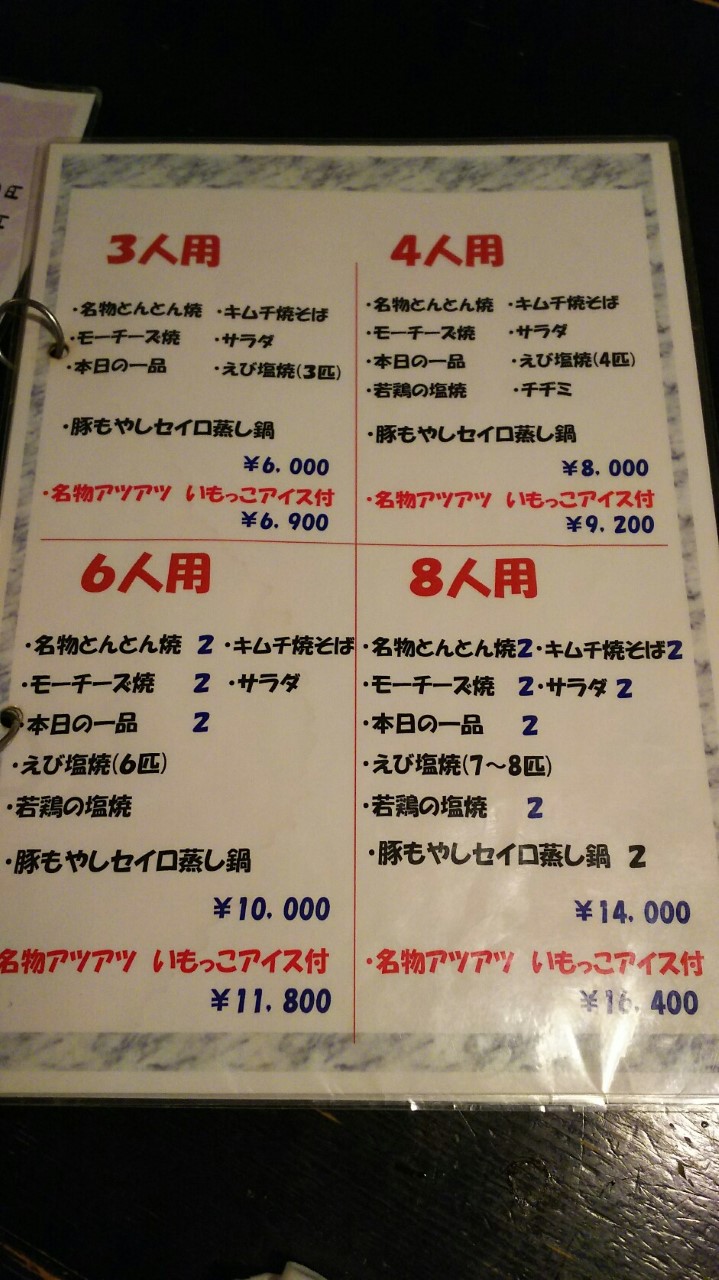 3人用
・名物とんとん焼 ・キムチ焼そば
・モーチーズ焼 ・サラダ
・本日の一品 ・えび塩焼(3匹)
・豚もやしセイロ蒸し鍋
¥6,000
・名物アツアツ いもっこアイス付
¥6,900
4人用
・名物とんとん焼 ・キムチ焼そば
・モーチーズ焼 ・サラダ
・本日の一品 ・えび塩焼(4匹)
・若鶏の塩焼 ・チヂミ
・豚もやしセイロ蒸し鍋
¥8,000
・名物アツアツ いもっこアイス付
¥9,200
6人用
・名物とんとん焼 2 ・キムチ焼そば
・モーチーズ焼 2 ・サラダ
・本日の一品 2
・えび塩焼(6匹)
・若鶏の塩焼
・豚もやしセイロ蒸し鍋
¥10,000
名物アツアツ いもっこアイス付
¥11,800
8人用
・名物とんとん焼2・キムチ焼そば2
・モーチーズ焼 2・サラダ 2
・本日の一品 2
・えび塩焼(7〜8匹)
・若鶏の塩焼 2
・豚もやしセイロ蒸し鍋 2
¥14,000
・名物アツアツ いもっこアイス付
¥16,400